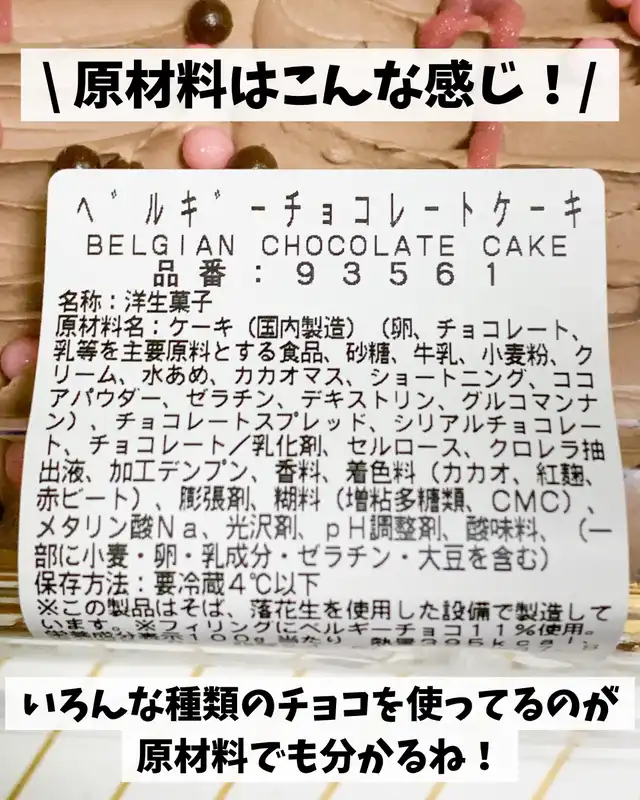 \ 原材料はこんな感じ！/
ベルギーチョコレートケーキ
BELGIAN CHOCOLATE CAKE
品番：93561
名称：洋生菓子
原材料名：ケーキ（国内製造）（卵、チョコレート、
乳等を主要原料とする食品、砂糖、牛乳、小麦粉、ク
リーム、水あめ、カカオマス、ショートニング、ココ
アパウダー、ゼラチン、デキストリン、グルコマンナ
ン）、チョコレートスプレッド、シリアルチョコレー
ト、チョコレート／乳化剤、セルロース、クロレラ抽
出液、加工デンプン、香料、着色料（カカオ、紅麹、
赤ビート）、膨張剤、糊料（増粘多糖類、CMC）、
メタリン酸Na、光沢剤、pH調整剤、酸味料、（一
部に小麦・卵・乳成分・ゼラチン・大豆を含む）
保存方法：要冷蔵4℃以下
※この製品はそば、落花生を使用した設備で製造して
います。※フィリングにベルギーチョコ11％使用。
栄養成分表示100g当たり 熱量395kcal、
いろんな種類のチョコを使ってるのが
原材料でも分かるね！